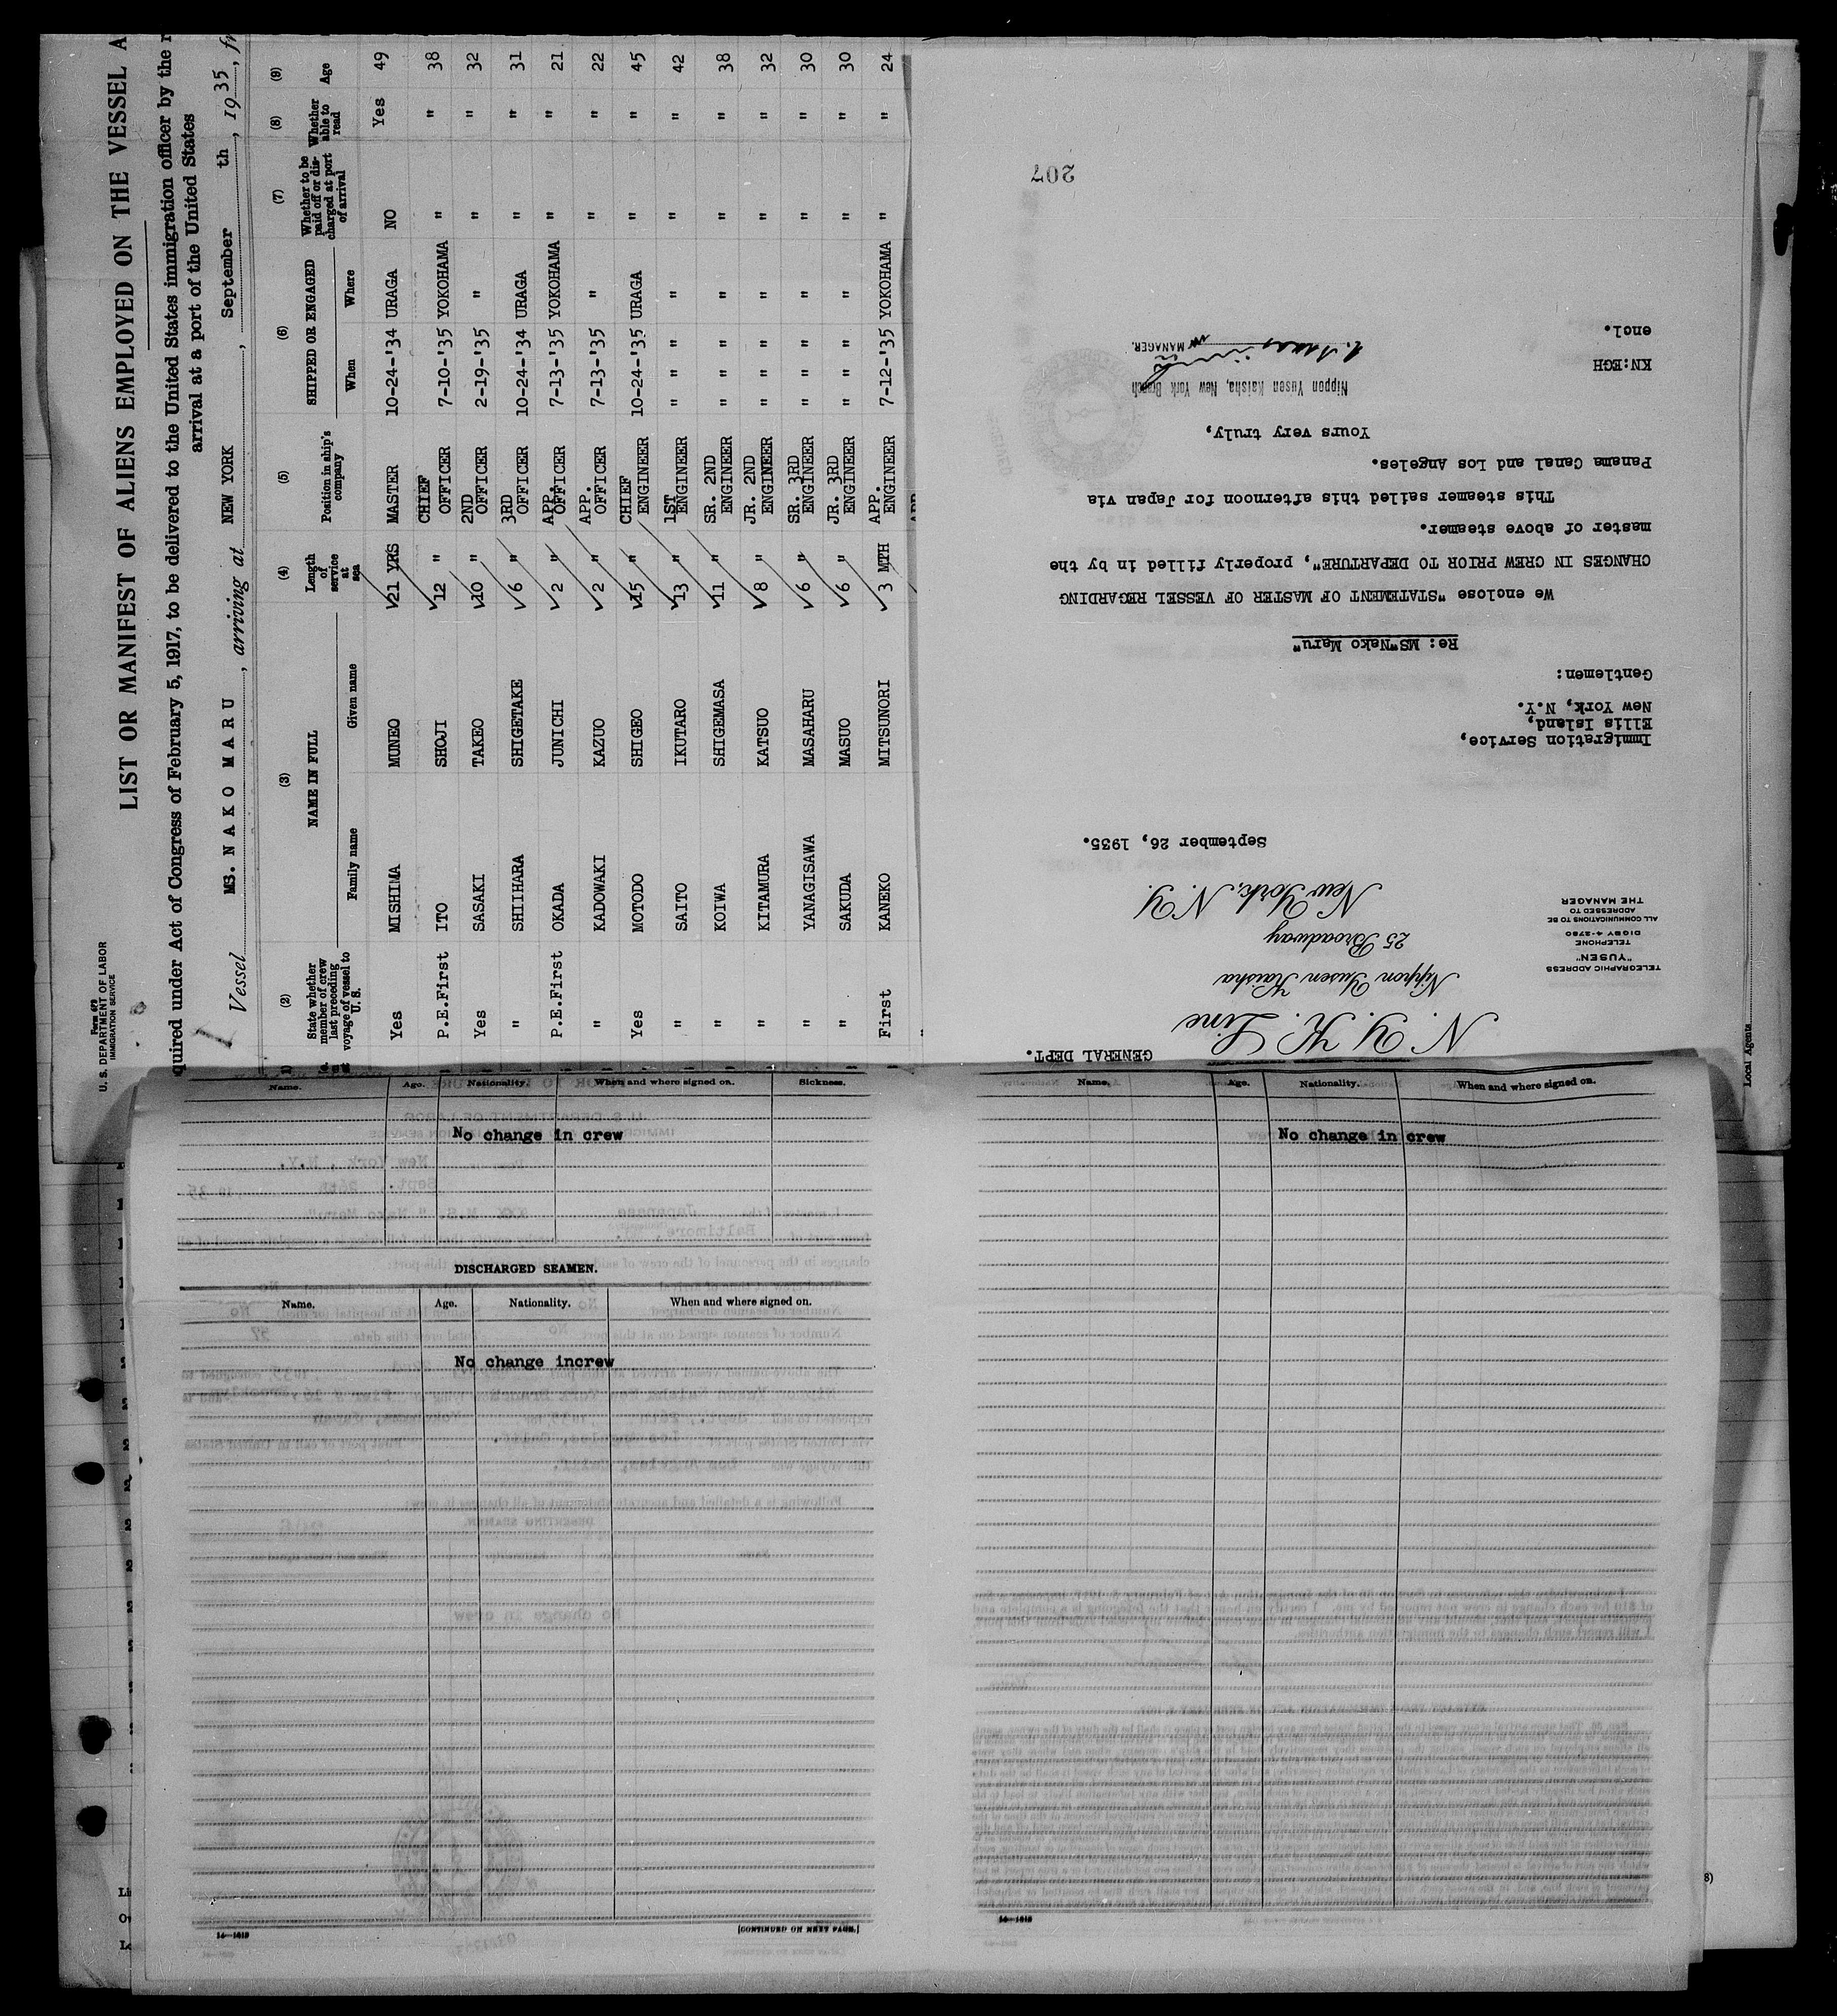 Form 679
U. S. DEPARTMENT OF LABOR
IMMIGRATION SERVICE
LIST OR MANIFEST OF ALIENS EMPLOYED ON THE VESSEL A
quired under Act of Congress of February 5, 1917, to be delivered to the United States immigration officer by the r
arrival at a port of the United States
Vessel MS. NAKO MARU, arriving at NEW YORK, September th, 1935, fr
(2) (3) (4) (5) (6) (7) (8) (9)
State whether member of crew last preceding voyage of vessel to U. S. NAME IN FULL Length of service at sea Position in ship's company SHIPPED OR ENGAGED Whether to be paid off or discharged at port of arrival Whether able to read Age
Family name Given name When Where
Yes MISHIMA MUNEO 21 YRS MASTER 10-24-'34 URAGA NO Yes 49
P.E.First ITO SHOJI 12 " CHIEF OFFICER 7-10-'35 YOKOHAMA " " 38
Yes SASAKI TAKEO 10 " 2ND OFFICER 2-19-'35 " " " 32
" SHIIHARA SHIGETAKE 6 " 3RD OFFICER 10-24-'34 URAGA " " 31
P.E.First OKADA JUNICHI 2 " APP. OFFICER 7-13-'35 YOKOHAMA " " 21
" KADOWAKI KAZUO 2 " APP. OFFICER 7-13-'35 " " " 22
Yes MOTODO SHIGEO 15 " CHIEF ENGINEER 10-24-'35 URAGA " " 45
" SAITO IKUTARO 13 " 1ST ENGINEER " " " " 42
" KOIWA SHIGEMASA 11 " SR. 2ND ENGINEER " " " " 38
" KITAMURA KATSUO 8 " JR. 2ND ENGINEER " " " " 32
" YANAGISAWA MASAHARU 6 " SR. 3RD ENGINEER " " " " 30
" SAKUDA MASUO 6 " JR. 3RD ENGINEER " " " " 30
First KANEKO MITSUNORI 3 MTH APP. ENGINEER 7-12-'35 YOKOHAMA " " 24
GENERAL DEPT.
N. Y. K. Line
Nippon Yusen Kaisha
25 Broadway
New York, N.Y.
TELEGRAPHIC ADDRESS
"YUSEN"
TELEPHONE
DIGBY 4-2780
ALL COMMUNICATIONS TO BE
ADDRESSED TO
THE MANAGER
September 26, 1935.
Immigration Service,
Ellis Island,
New York, N.Y.
Gentlemen:
Re: MS"Nako Maru"
We enclose "STATEMENT OF MASTER OF VESSEL REGARDING
CHANGES IN CREW PRIOR TO DEPARTURE", properly filled in by the
master of above steamer.
This steamer sailed this afternoon for Japan via
Panama Canal and Los Angeles.
Yours very truly,
Nippon Yusen Kaisha, New York Branch
MANAGER.
KN:EGH
encl.
207
Local Agents
Name. Age. Nationality. When and where signed on. Sickness.
No change in crew
DISCHARGED SEAMEN.
Name. Age. Nationality. When and where signed on.
No change increw
14—1619
[CONTINUED ON NEXT PAGE.]
Name. Age. Nationality. When and where signed on.
No change in crew
14—1619